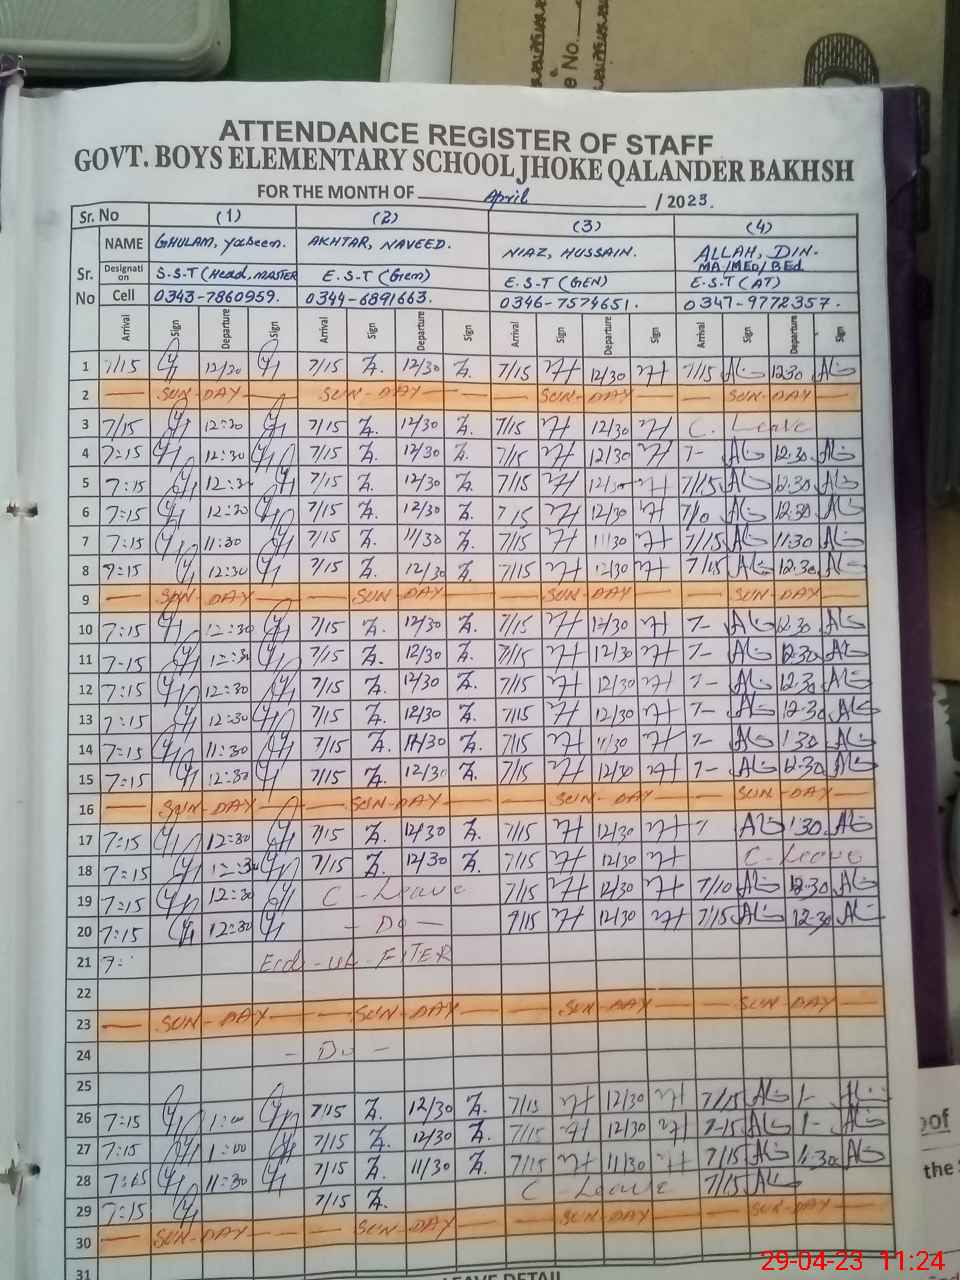 e No.
ATTENDANCE REGISTER OF STAFF
GOVT. BOYS ELEMENTARY SCHOOL JHOKE QALANDER BAKHSH
FOR THE MONTH OF April / 2023.
Sr. No (1) (2) (3) (4)
NAME GHULAM, Yaseen. AKHTAR, NAVEED. NIAZ, HUSSAIN. ALLAH, DIN.
MA/MED/BEd.
Sr. Designati on S.S.T (Head, MASTER E.S.T (Gen) E.S.T (GEN) E.S.T (AT)
No Cell 0343-7860959. 0344-6891663. 0346-7574651. 0347-9772357.
Arrival Sign Departure Sign Arrival Sign Departure Sign Arrival Sign Departure Sign Arrival Sign Departure Sign
1 7/15 12/30 7/15 12/30 7/15 12/30 7/15 12.30
2 — SUN-DAY — SUN-DAY — SUN-DAY — SUN-DAY
3 7/15 12:30 7/15 12/30 7/15 12/30 C. Leave
4 7:15 12:30 7/15 12/30 7/15 12/30 7- 12.30
5 7:15 7/15 12/30 7/15 12/30 7/15 12.30
6 7:15 12:30 7/15 12/30 7 15 12/30 7/10 12.30
7 7:15 11:30 7/15 11/30 7/15 11/30 7/15 11.30
8 7:15 12:30 7/15 12/30 7/15 12/30 7/15 12.30
9 — SUN-DAY — SUN-DAY — SUN-DAY — SUN-DAY
10 7:15 12:30 7/15 12/30 7/15 12/30 7- 12.30
11 7-15 12:30 7/15 12/30 7/15 12/30 7- 12.30
12 7:15 12:30 7/15 12/30 7/15 12/30 7- 12.30
13 7:15 12:30 7/15 12/30 7/15 12/30 7- 12.30
14 7:15 11:30 7/15 11/30 7/15 11/30 7- 1.30
15 7:15 12:30 7/15 12/30 7/15 12/30 7- 12.30
16 — SUN-DAY — SUN-DAY — SUN-DAY — SUN-DAY
17 7:15 12:30 7/15 12/30 7/15 12/30 1.30
18 7:15 7/15 12/30 7/15 12/30 C-Leave
19 7:15 12:30 C-Leave 7/15 12/30 7/10 12.30
20 7:15 12:30 — Do — 7/15 12/30 7/15 12.30
21 7: Eid-ul-FITER
22
23 — SUN-DAY — SUN-DAY — SUN-DAY — SUN-DAY
24 - Do -
25
26 7:15 1:00 7/15 12/30 7/15 12/30 7/15 1-
27 7:15 1:00 7/15 12/30 7/15 12/30 7-15 1-
28 7:15 11:30 7/15 11/30 7/15 11/30 7/15 11.30
29 7:15 7/15 C-Leave 7/15
30 SUN-DAY — SUN-DAY — SUN-DAY — SUN-DAY
31
LEAVE DETAIL
oof
the
29-04-23 11:24